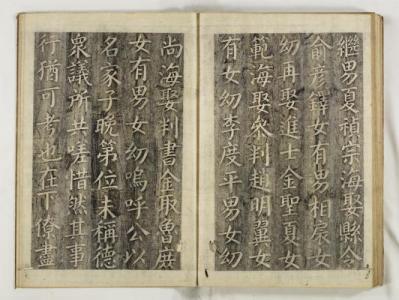 継男夏禎宗海娶縣令
俞彦鐸女有男相宸女
幼再娶進士金聖夏女
範海娶参判趙明翼女
有女幼季度平男女幼
尚海娶判書金取魯庶
女有男女幼嗚呼公以
名家子晩第位未稱德
衆議所共嗟惜然其事
行猶可考也在下僚盡